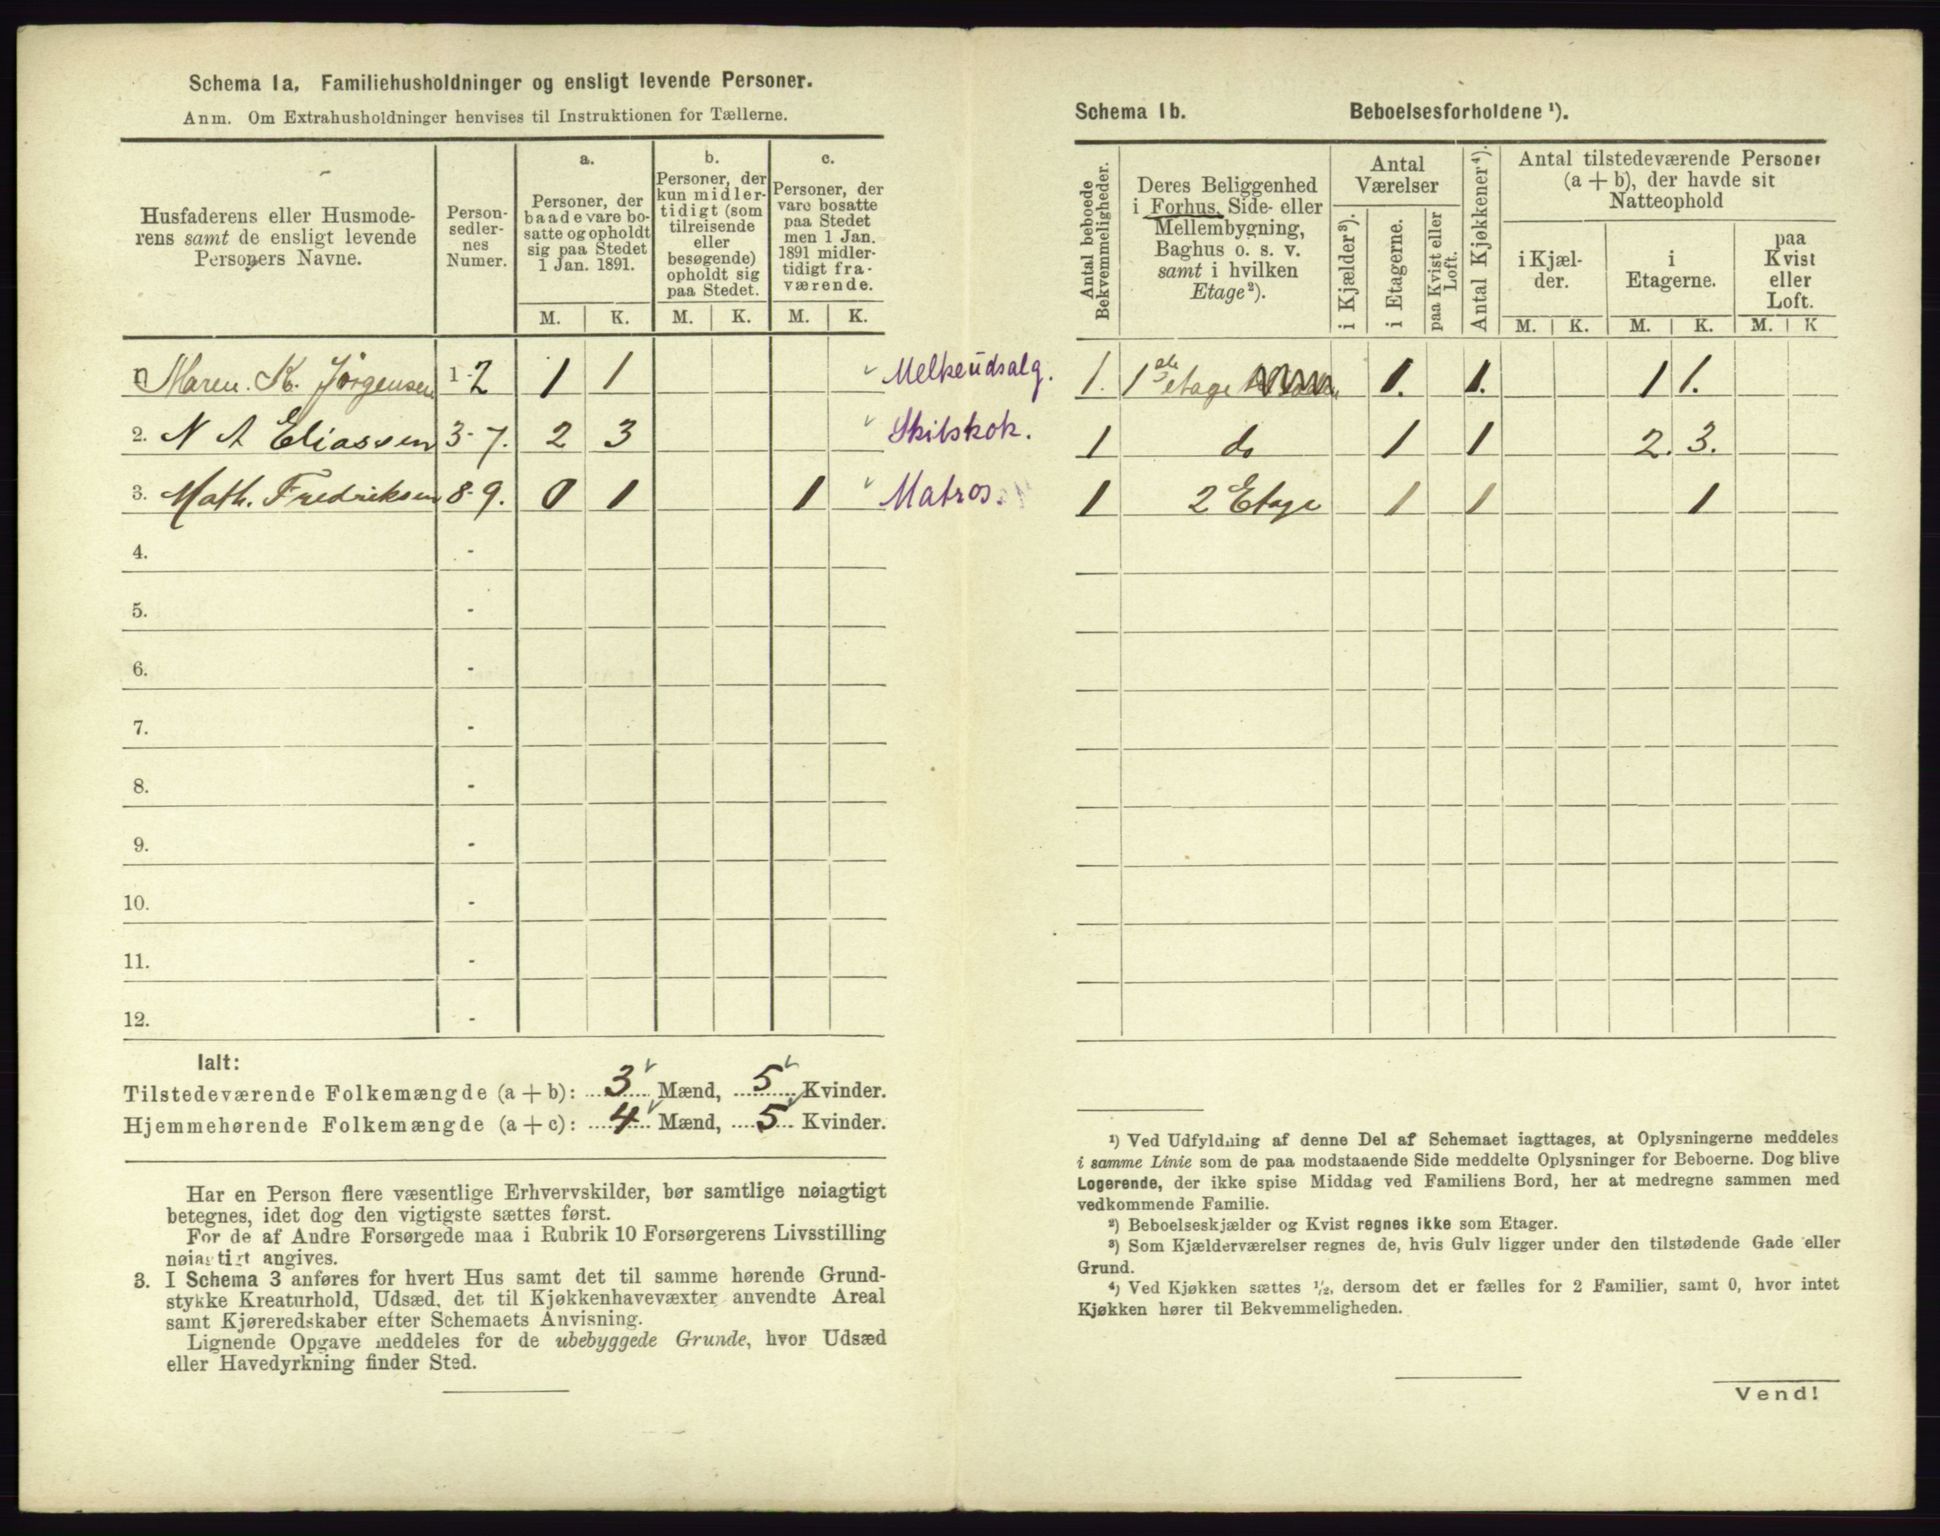 Schema 1a. Familiehusholdninger og ensligt levende Personer.
Anm. Om Extrahusholdninger henvises til Instruktionen for Tællerne.
Husfaderens eller Husmode-
rens samt de ensligt levende
Personers Navne.
Person-
sedler-
nes
Numer.
a.
Personer, der
baade vare bo-
satte og opholdt
sig paa Stedet
1 Jan. 1891.
b.
Personer, der
kun midler-
tidigt (som
tilreisende
eller
besøgende)
opholdt sig
paa Stedet.
c.
Personer, der
vare bosatte
paa Stedet
men 1 Jan.
1891 midler-
tidigt fra-
værende.
M. K. M. K. M. K.
1. Maren. K. Jørgensen 1-2 1 1 Melkeudsalg.
2. N A Eliassen 3-7. 2 3 Skibskok.
3. Math. Fredriksen 8-9. 0 1 1 Matros.
4. -
5. -
6. -
7. -
8. -
9. -
10. -
11. -
12. -
Ialt:
Tilstedeværende Folkemængde (a + b): 3 Mænd, 5 Kvinder.
Hjemmehørende Folkemængde (a + c): 4 Mænd, 5 Kvinder.
Har en Person flere væsentlige Erhvervskilder, bør samtlige nøiagtigt
betegnes, idet dog den vigtigste sættes først.
For de af Andre Forsørgede maa i Rubrik 10 Forsørgerens Livsstilling
nøiagtigt angives.
3. I Schema 3 anføres for hvert Hus samt det til samme hørende Grund-
stykke Kreaturhold, Udsæd, det til Kjøkkenhavevæxter anvendte Areal
samt Kjøreredskaber efter Schemaets Anvisning.
Lignende Opgave meddeles for de ubebyggede Grunde, hvor Udsæd
eller Havedyrkning finder Sted.
Schema 1b. Beboelsesforholdene ¹).
Antal beboede
Bekvemmeligheder.
Deres Beliggenhed
i Forhus, Side- eller
Mellembygning,
Baghus o. s. v.
samt i hvilken
Etage²).
Antal
Værelser
i Kjælder³).
i Etagerne.
paa Kvist eller
Loft.
Antal Kjøkkener⁴).
Antal tilstedeværende Personer
(a + b), der havde sit
Natteophold
i Kjæl-
der.
i
Etagerne.
paa
Kvist
eller
Loft.
M. K. M. K. M. K
1. 1ste etage 1. 1. 1 1.
1 do 1 1 2. 3.
1 2 Etage 1 1 1
¹) Ved Udfyldning af denne Del af Schemaet iagttages, at Oplysningerne meddeles
i samme Linie som de paa modstaaende Side meddelte Oplysninger for Beboerne. Dog blive
Logerende, der ikke spise Middag ved Familiens Bord, her at medregne sammen med
vedkommende Familie.
²) Beboelseskjælder og Kvist regnes ikke som Etager.
³) Som Kjælderværelser regnes de, hvis Gulv ligger under den tilstødende Gade eller
Grund.
⁴) Ved Kjøkken sættes ½, dersom det er fælles for 2 Familier, samt 0, hvor intet
Kjøkken hører til Bekvemmeligheden.
Vend!